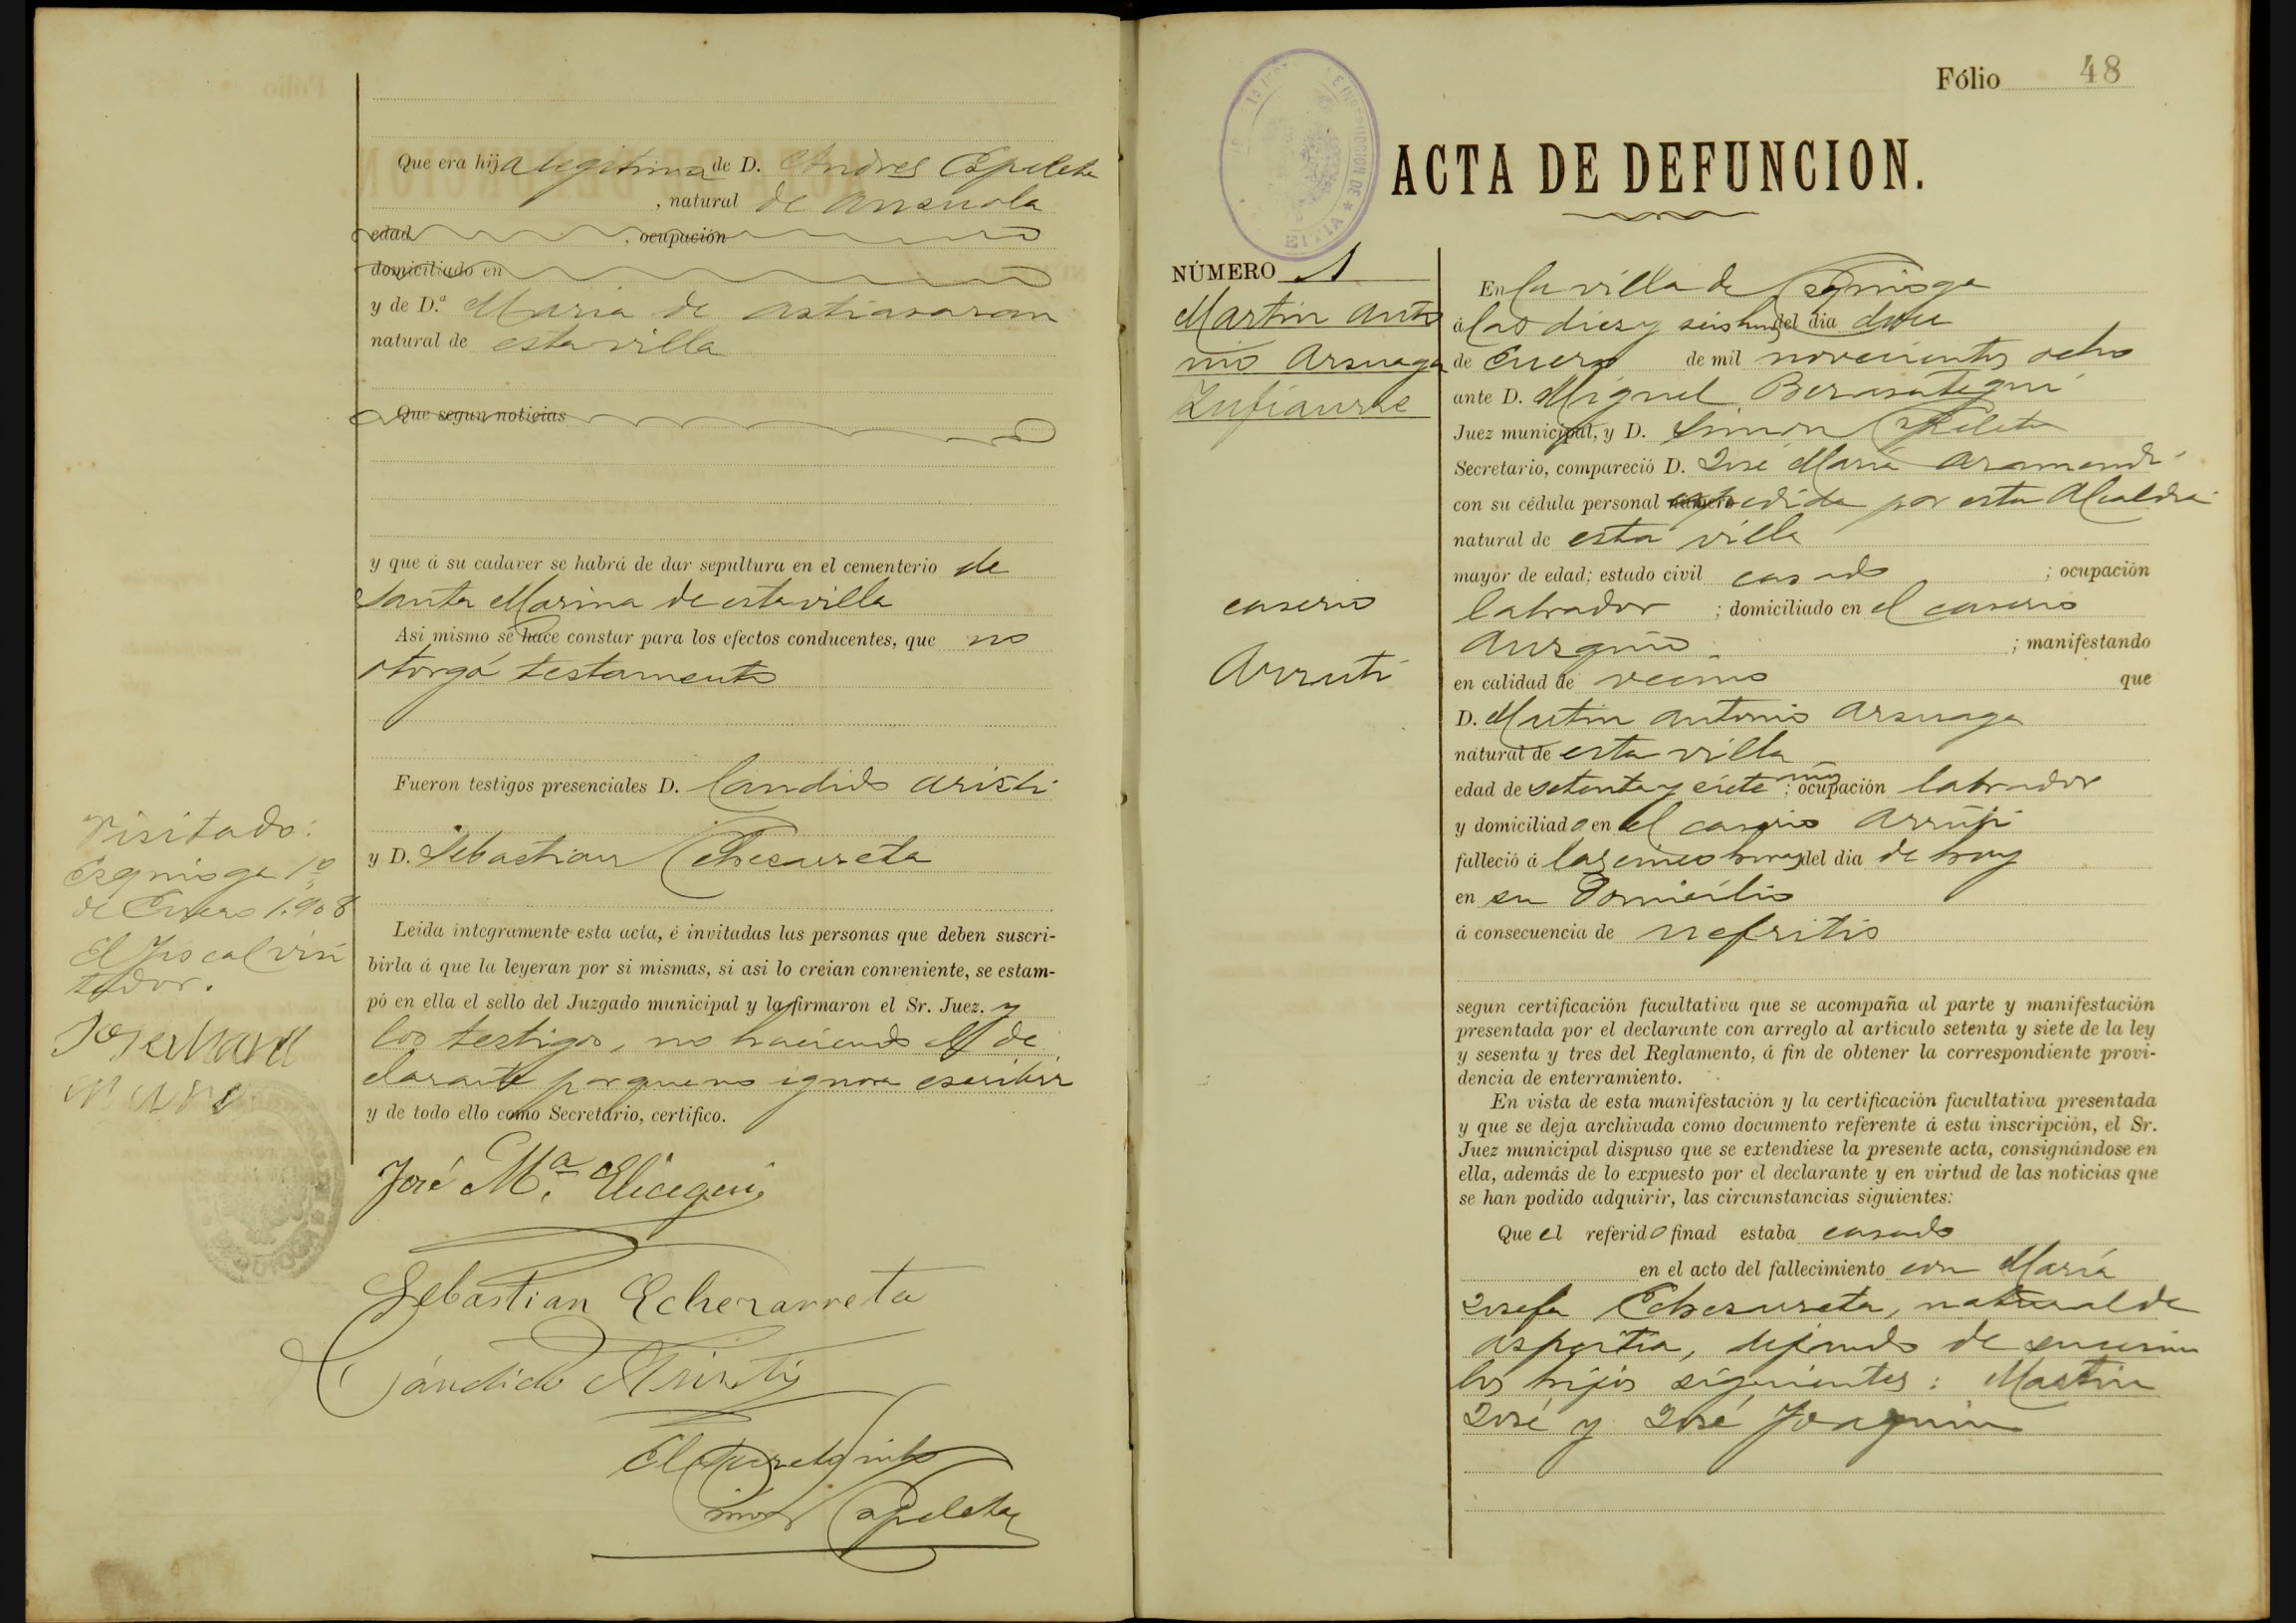 Que era hija legitima de D. Andres Espeleta
, natural de Ansuola
edad , ocupación
domiciliado en
y de D.ª Maria de Astiasaran
natural de esta villa
Que segun noticias
y que á su cadaver se habrá de dar sepultura en el cementerio de
Santa Marina de esta villa
Asi mismo se hace constar para los efectos conducentes, que no
otorgó testamento
Fueron testigos presenciales D. Candido Aristi
y D. Sebastian Echezarreta
Leida integramente esta acta, é invitadas las personas que deben suscri-
birla á que la leyeran por si mismas, si asi lo creian conveniente, se estam-
pó en ella el sello del Juzgado municipal y la firmaron el Sr. Juez, y
los testigos, no haciendo el de
clarante porque ignora escribir
y de todo ello como Secretario, certifico.
José M.ª Elicegui
Sebastian Echezarreta
Cándido Aristi
El Secretario
Simon Espeleta
Visitado:
Ezquioga 1º
de Enero 1.908
El Fiscal visi
tador.
Fólio 48
ACTA DE DEFUNCION.
NÚMERO 1
Martin Anto
nio Arsuaga
Zufiaurre
caserio
Arruti
En la villa de Ezquioga
á las diez y seis horas del dia doce
de Enero de mil novecientos ocho
ante D. Miguel Berasategui
Juez municipal, y D. Simon Espeleta
Secretario, compareció D. José Maria Aramendi
con su cédula personal número expedida por esta Alcaldia
natural de esta villa
mayor de edad; estado civil casado ; ocupación
labrador ; domiciliado en el caserio
; manifestando
en calidad de vecino que
D. Martin Antonio Arsuaga
natural de esta villa
edad de setenta y siete años ; ocupación labrador
y domiciliado en el caserio Arruti
falleció á las cinco horas del dia de hoy
en su Domicilio
á consecuencia de nefritis
segun certificación facultativa que se acompaña al parte y manifestación
presentada por el declarante con arreglo al artículo setenta y siete de la ley
y sesenta y tres del Reglamento, á fin de obtener la correspondiente provi-
dencia de enterramiento.
En vista de esta manifestación y la certificación facultativa presentada
y que se deja archivada como documento referente á esta inscripción, el Sr.
Juez municipal dispuso que se extendiese la presente acta, consignándose en
ella, además de lo expuesto por el declarante y en virtud de las noticias que
se han podido adquirir, las circunstancias siguientes:
Que el referido finad estaba casado
en el acto del fallecimiento con María
Josefa Echezarreta, natural de
Azpeitia, dejando de
los hijos siguientes: Martin
José y José Joaquin